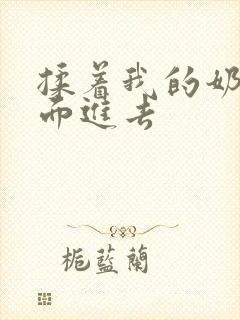 揉着我的奶
而進去
栀蓝蘭